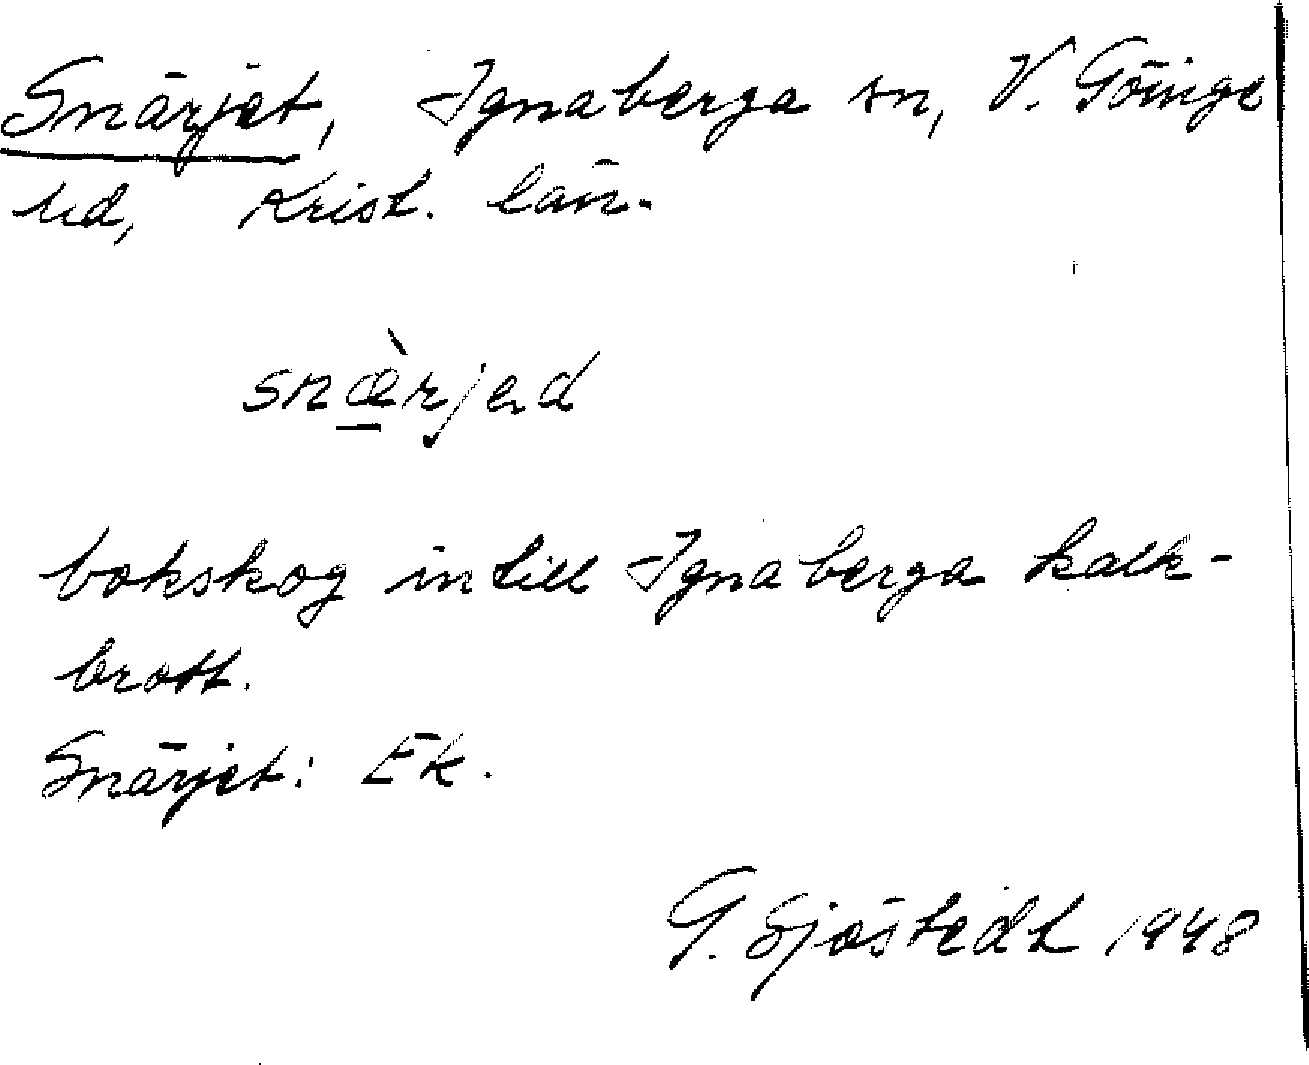 Snärjet, Ignaberga sn, V. Göinge
hd, Krist. län.
snæ̲̀rjed
bokskog intill Ignaberga kalk-
brott.
Snärjet: Ek.
G. Sjöstedt 1948